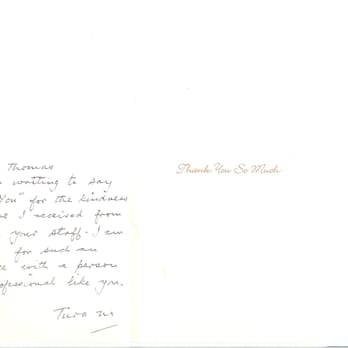 Thomas
writing to say
You" for the kindness
I received from
your staff. I am
for such an
with a person
like you.
Thank You So Much